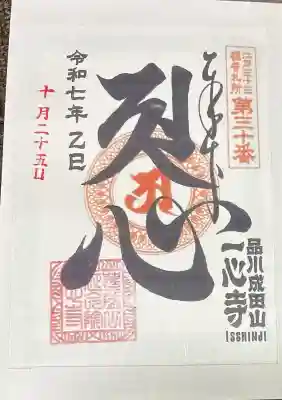 江戸三十三
観音札所
第三十番
奉拝
令和七年 乙巳
十月二十五日
品川成田山
一心寺
ISSHINJI